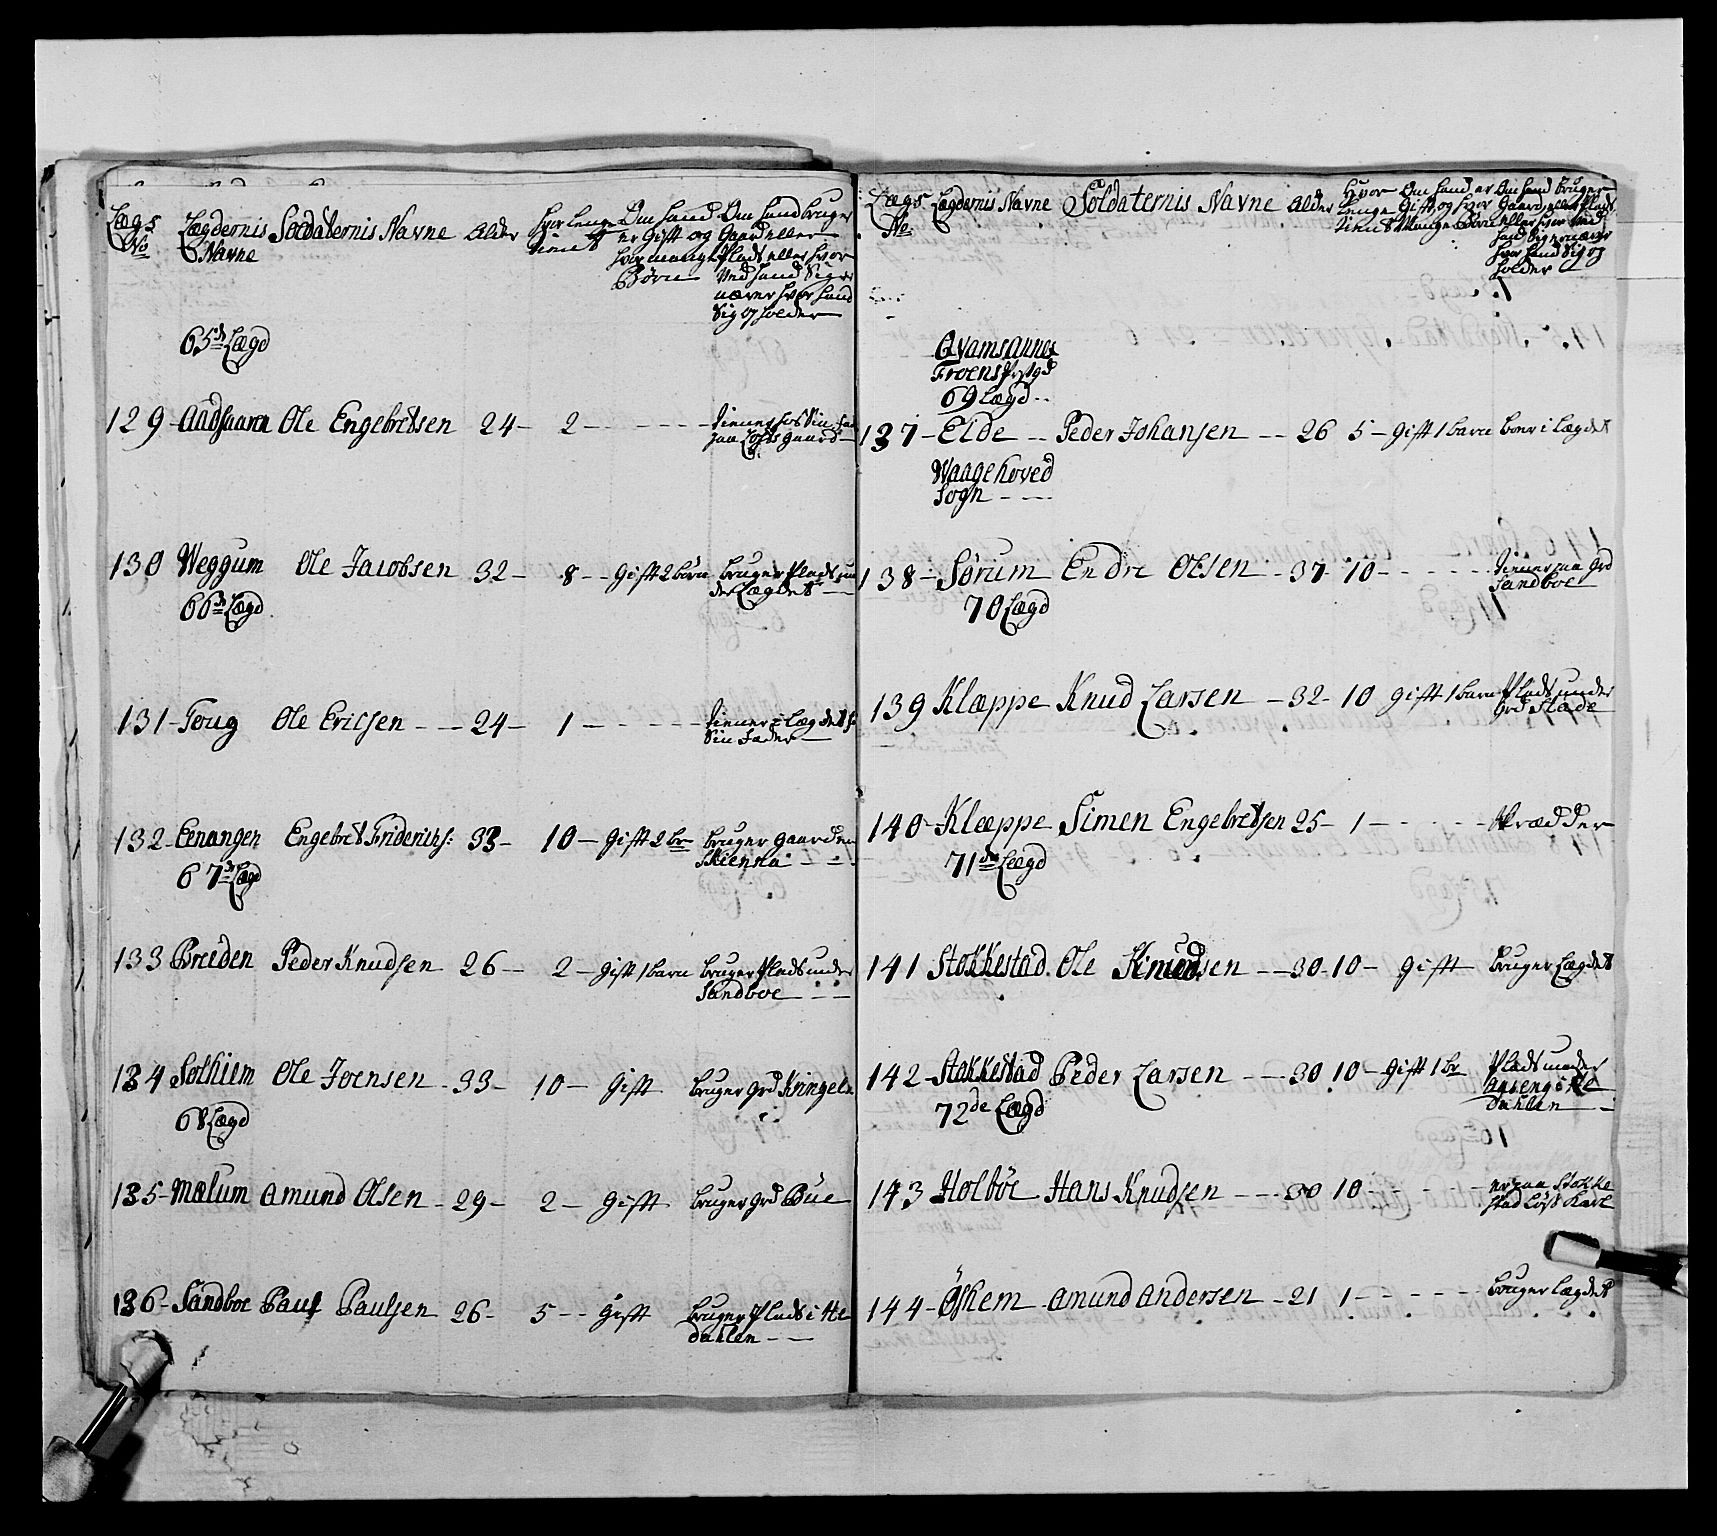 Lægs
No
Lægdernis
Navne
Soldaternis Navne
Alder
Hvor Lenge
tient
Om hand
er Gift og
hvormange
Børn
Om hand bruger
Gaard eller
Plads eller hvor
Ved hand Sig er
nærer hvor hand
Sig opholder
65de Lægd
129 Aadsaaren Ole Engebretsen 24 2 tiener hos Sin
paa Gaard
130 Weggum Ole Jacobsen 32 8 Gift 2 børn bruger Plads un
der Lægdet
66de Lægd
131 Toug Ole Ericsen 24 1 tiener i Lægdet
Sin Fader
132 Eenangen Engebret Friderichs: 33 10 Gift 2 br bruger gaarden
Skienna
67de Lægd
133 Breden Peder Knudsen 26 2 Gift 1 barn bruger Plads under
Sandboe
134 Solhiem Ole Joensen 33 10 Gift bruger Grd Kringelen
68 Lægd
135 Mælum Amund Olsen 29 2 Gift bruger Grd Bue
136 Sandboe Paul Paulsen 26 5 Gift bruger Plads i He
dahlen
Lægs
No
Lægdernis Navne
Soldaternis Navne
Alder
Hvor
Lenge
tient
Om hand er
Gift og hvor
Mange Børn
Om hand bruger
Gaard eller Plads
eller hvor Ved
hand Sig ernærer
hvor hand Sig op
holder
Qvams Annex
Froens Prstgd
69 Lægd
137 Eide Peder Johansen 26 5 Gift 1 barn boer i Lægdet
Waage hoved
Sogn
138 Sørum Endre Olsen 37 10 tiener paa Grd
Sandboe
70 Lægd
139 Klæppe Knud Larsen 32 10 Gift 1 barn Plads under
Grd
140 Klæppe Simen Engebretsen 25 1 Skrædder
71de Lægd
141 Stokkestad Ole 30 10 Gift bruger Lægdet
142 Stokkestad Peder Larsen 30 10 Gift 1 br Plads under
i He
dahlen
72de Lægd
143 Holböe Hans Knudsen 30 10 er paa Stokke
stad Løs Karl
144 Öyhem Amund Andersen 21 1 bruger Lægdet